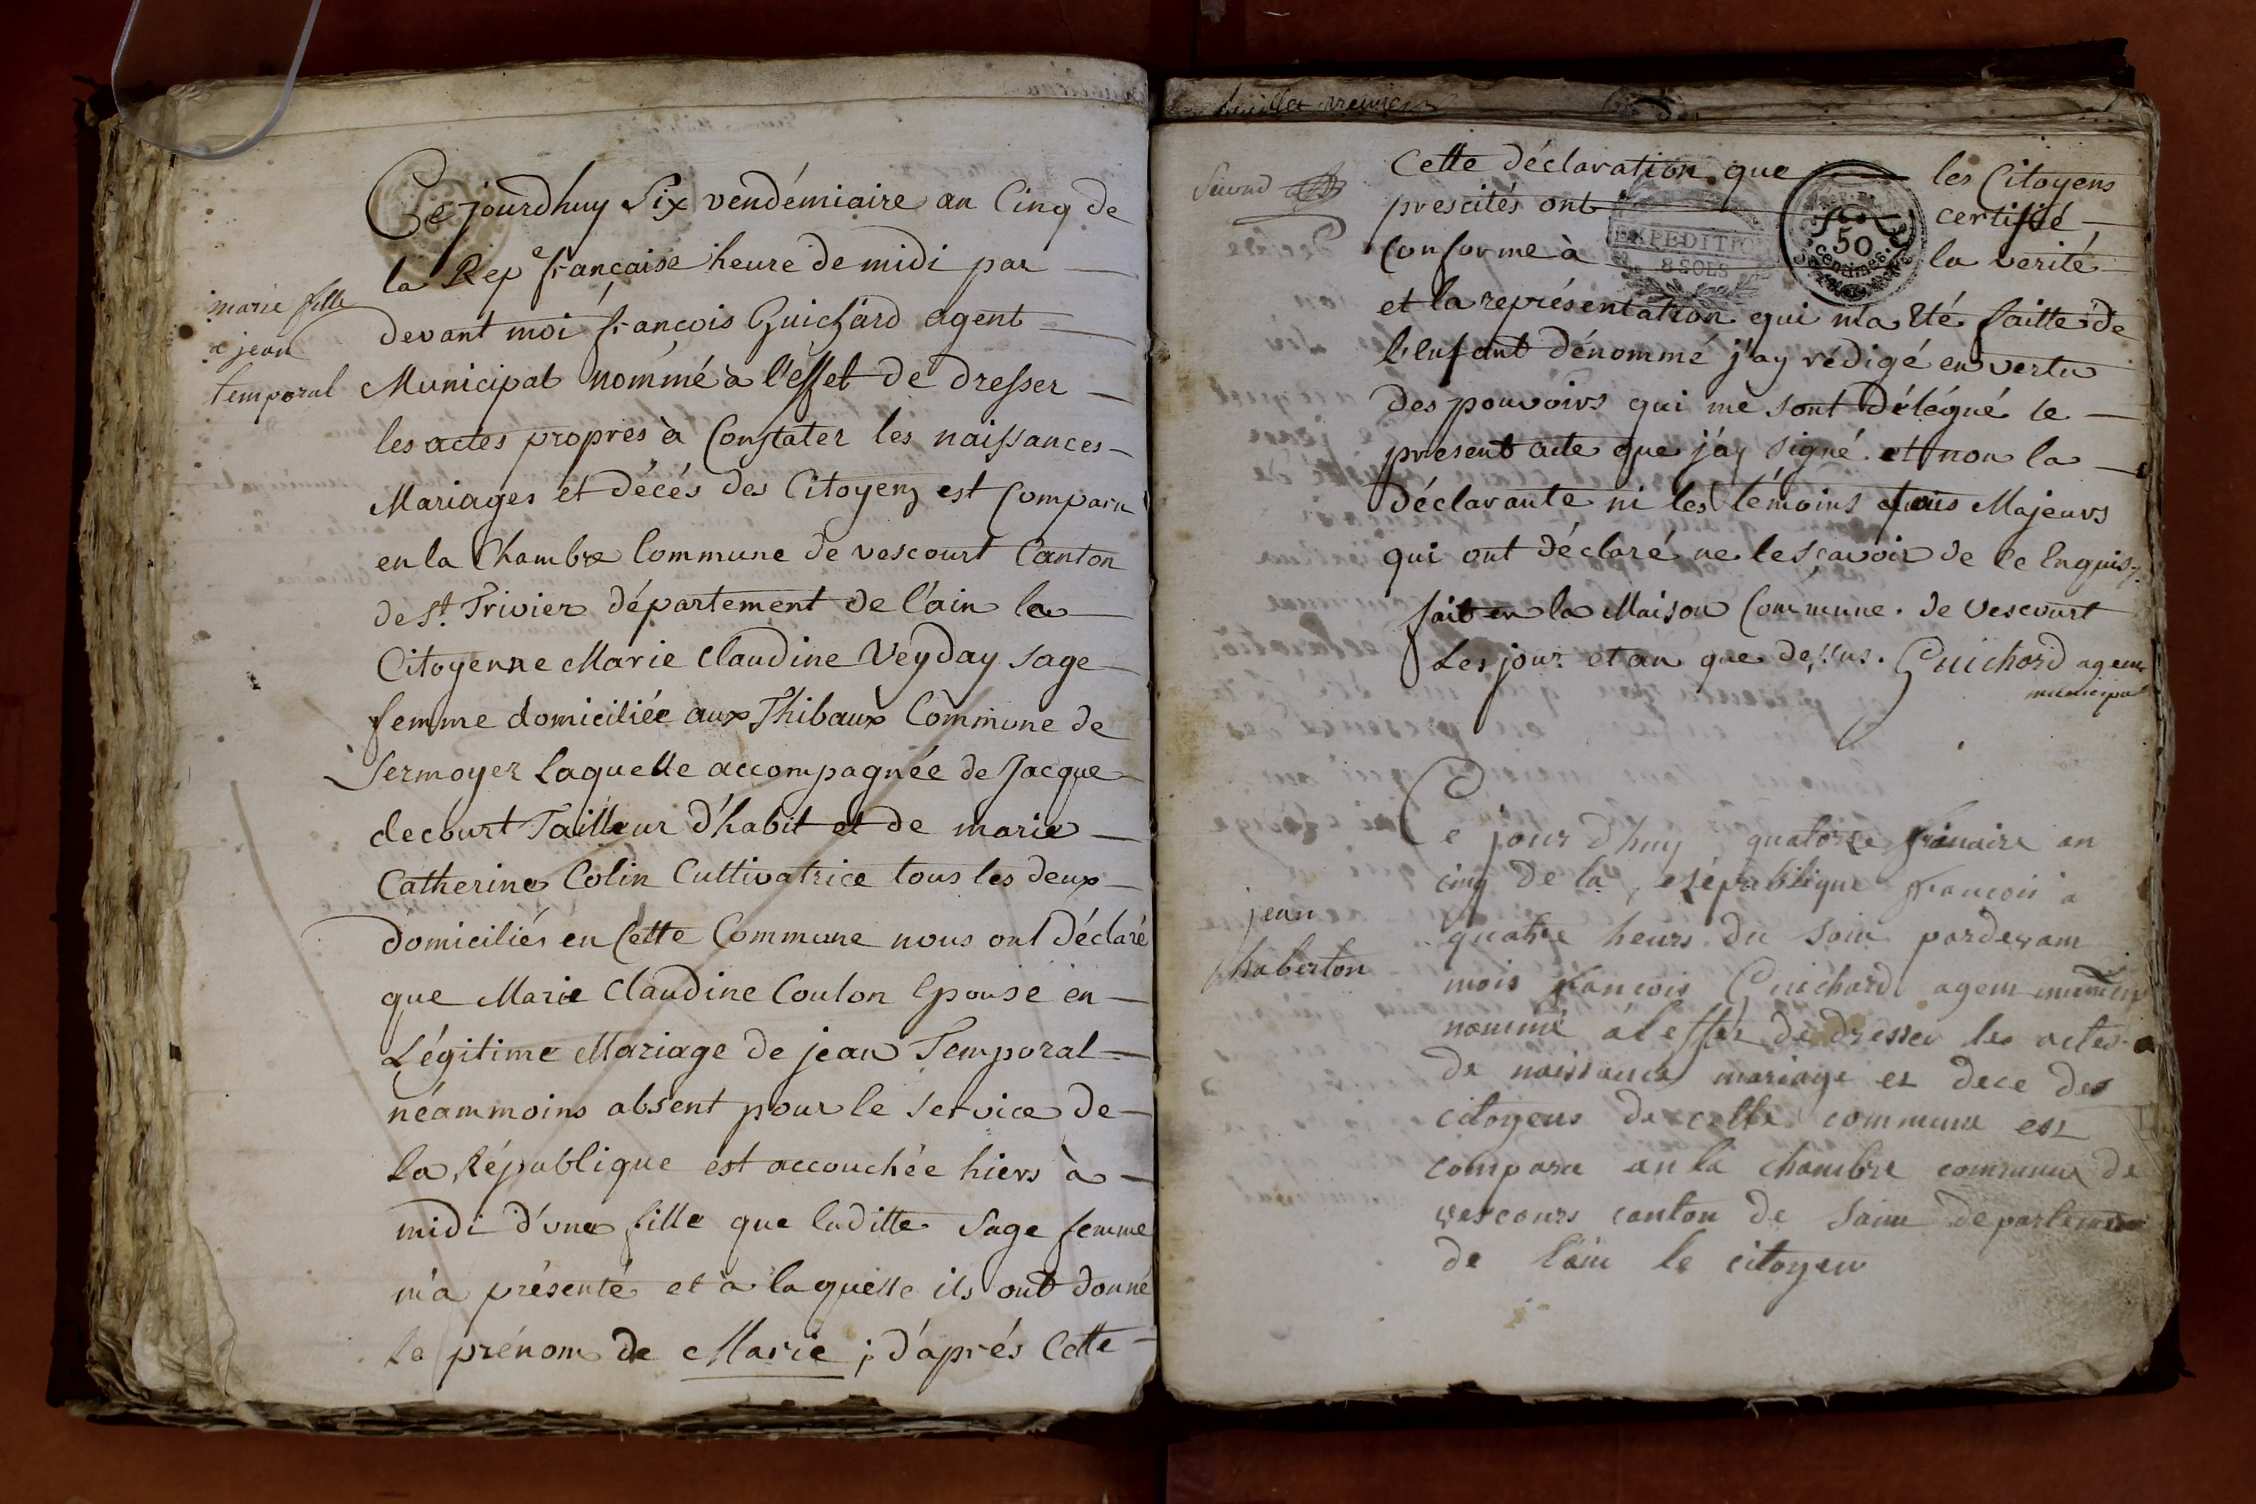 marie fille
a jean
temporal
Ce jourdhuy Six vendémiaire an Cinq de
la Repe française heure de midi par
devant moi françois Guichard agent
Municipal nommé à l'effet de dresser
les actes propres à Constater les naissances
Mariages et décés des Citoyens est Comparu
en la Chambre Commune de vescourt Canton
de St. Trivier département de l'ain la
Citoyenne Marie Claudine Veyday sage
femme domiciliée aux Thibaux Commune de
Sermoyer Laquelle accompagnée de Jacque
decourt Tailleur d'habit et de marie
Catherine Colin Cultivatrice tous les deux
domiciliés en Cette Commune nous ont Déclaré
que Marie Claudine Coulon Epouse en
Légitime Mariage de jean Temporal
néammoins absent pour le service de
la République est accouchée hiers à
midi d'une fille que laditte Sage femme
m'a présenté et à laquelle ils ont donné
Le prénom de Marie ; d'aprés Cette
feuillet premier
Second
Cette déclaration que les Citoyens
prescités ont certifié
Conforme à la verité
EXPEDITIO
50
Centimes
et la représentation qui m'a Eté faitte de
l'enfant dénommé j'ay rédigé en vertu
des pouvoirs qui me sont Délégué le
present acte que j'ay signé et non la
déclarante ni les témoins tous Majeurs
qui ont déclaré ne le sçavoir de ce Enquis
fait en la Maison Commune de Vescourt
Les jour et an que dessus. Guichard agent
municipal
jean
Chaberton
Ce jour dhuy quatorze frimaire an
cinq de la république françois a
quatre heurs du soir pardevam
mois françois Guichard agem
nommé a leffet de dresser les actes
de naissance mariage et dece des
citoyens de cette commune est
compara an la chambre commune de
vescours canton de departement
de lain le citoyen